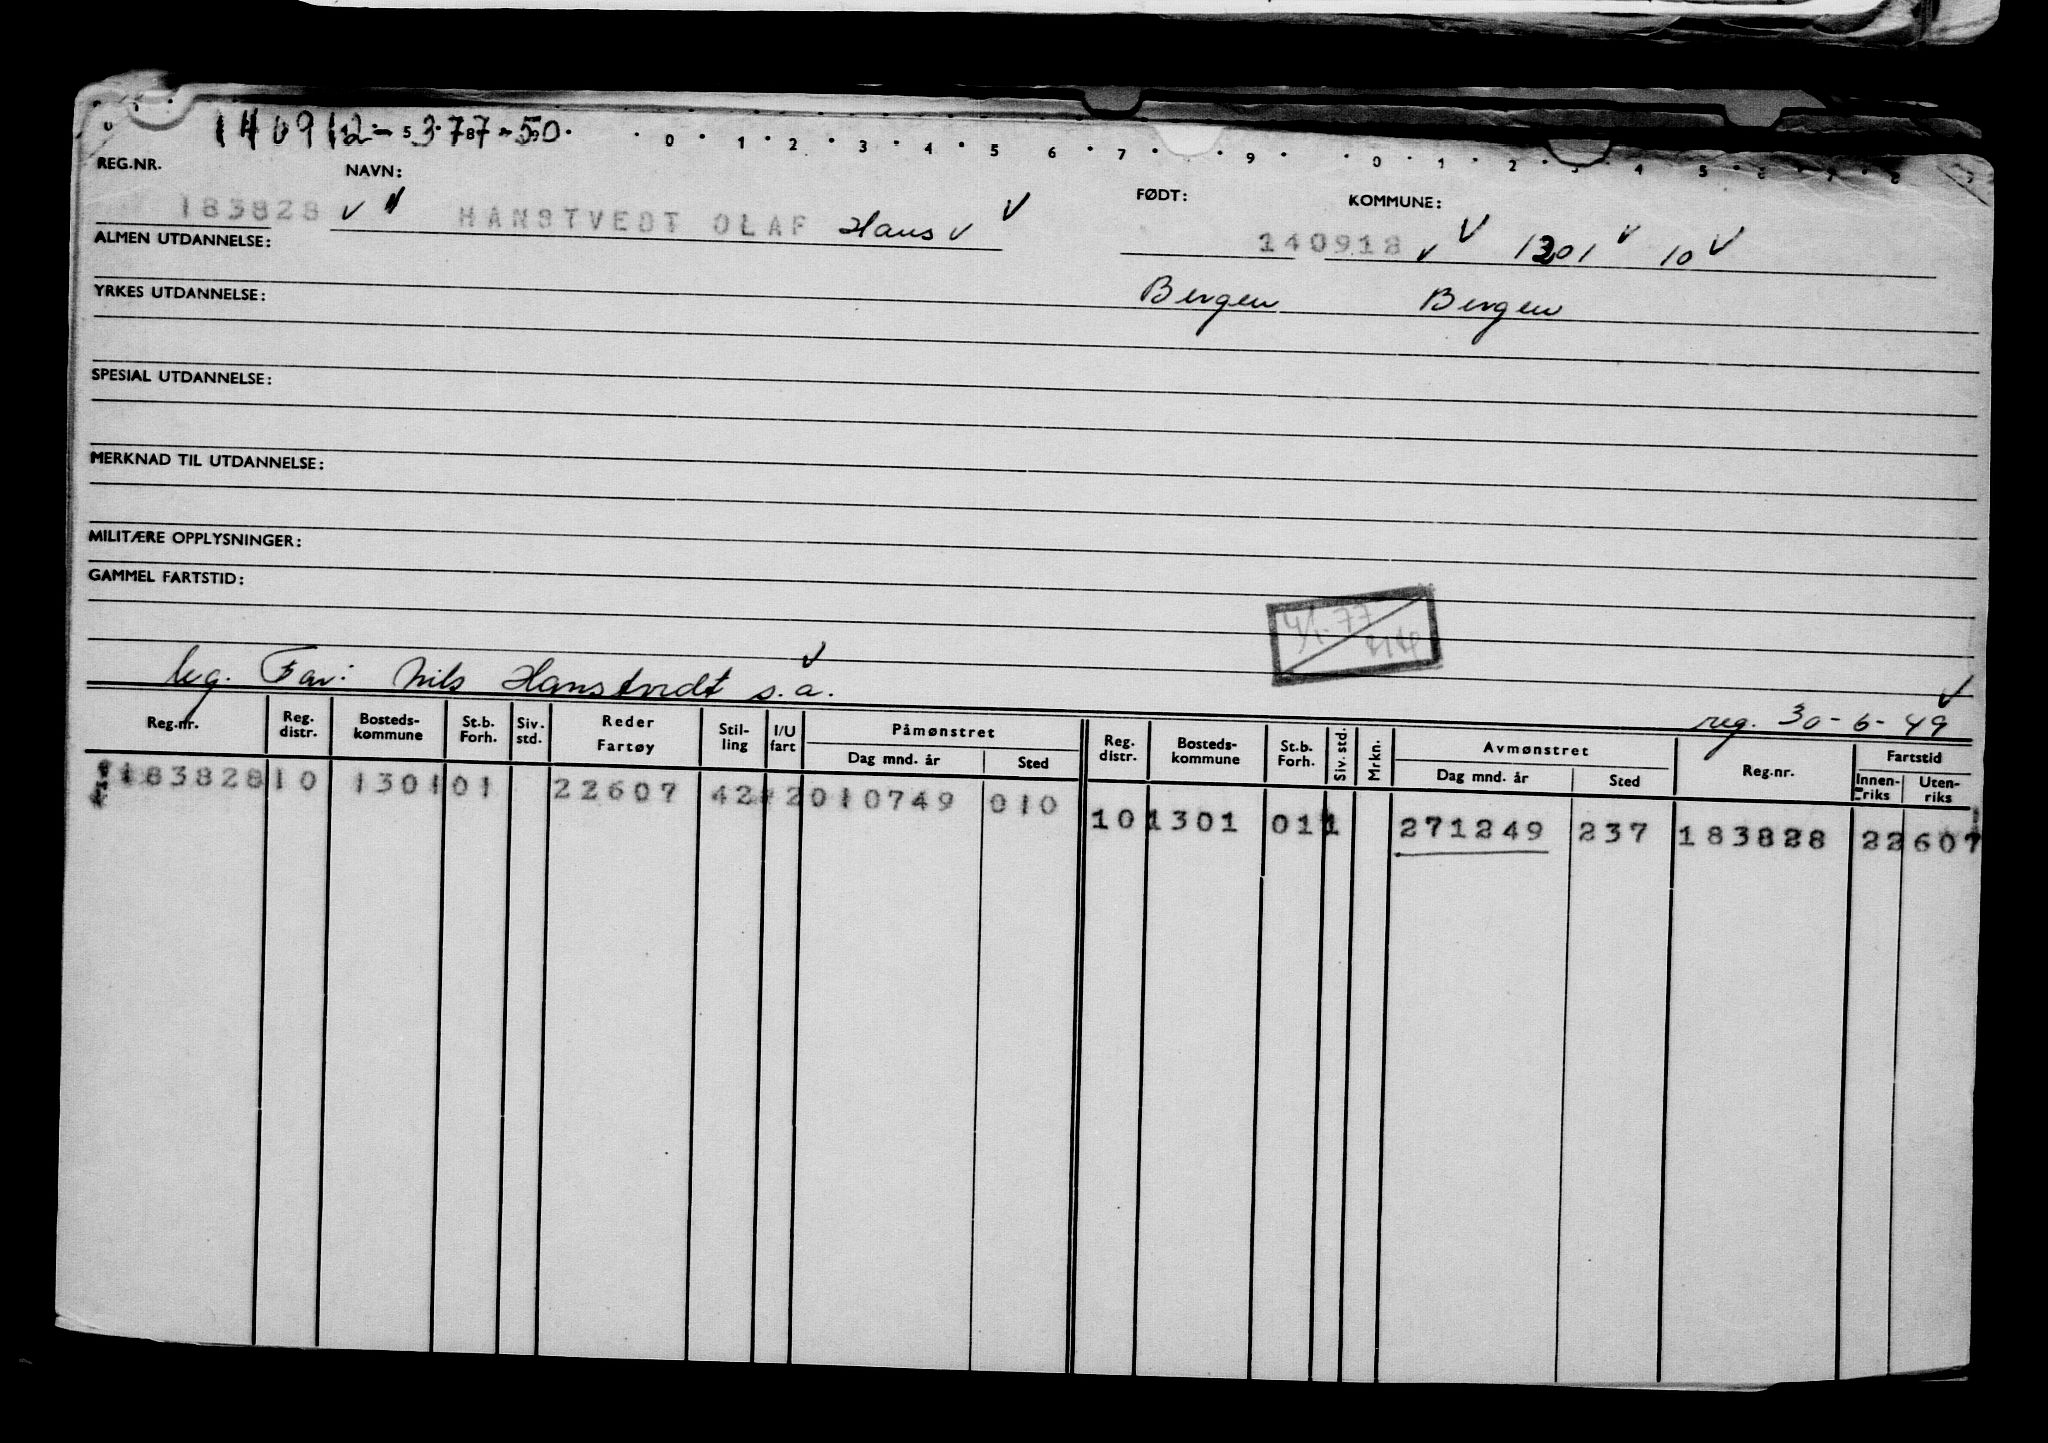 0 · 1 · 2 · 3 · 4 · 5 6 · 7 · 9 · · 0 · 1 · 2 · 3 · 4 5 · 6 · 7 · 8
REG.NR. NAVN: FØDT: KOMMUNE:
183828 HANSTVEDT OLAF Hans 140918 1301 10
ALMEN UTDANNELSE:
Bergen Bergen
YRKES UTDANNELSE:
SPESIAL UTDANNELSE:
MERKNAD TIL UTDANNELSE:
MILITÆRE OPPLYSNINGER:
GAMMEL FARTSTID:
4/1.77
leg. Far: Nils Hanstvedt s.a.
reg. 30-6-49
Reg.nr. Reg. distr. Bosteds-kommune St.b. Forh. Siv. std. Reder Fartøy Stil-ling I/U fart Påmønstret Dag mnd. år Sted Reg. distr. Bosteds-kommune St.b. Forh. Siv. std. Mrkn. Avmønstret Dag mnd. år Sted Reg.nr. Fartstid Innen-riks Uten-riks
183828 10 1301 01 22607 42 2 010749 010 10 1301 01 1 271249 237 183828 22607